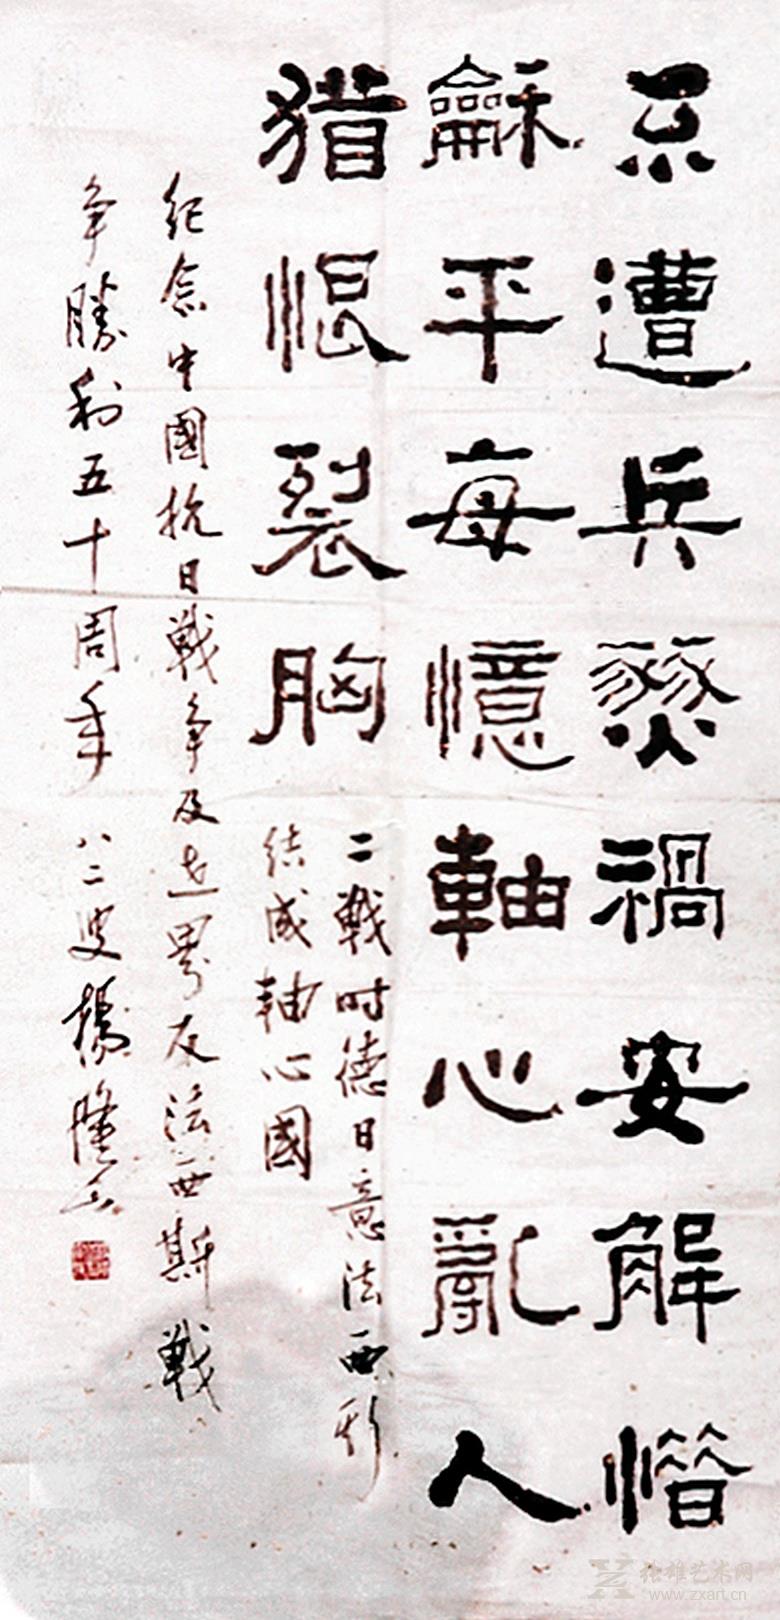 不遭兵燹禍安解惜
龢平每憶軸心亂人
猶恨裂胸
二戰时德日意法西斯
結成軸心國
紀念中國抗日戰争及世界反法西斯戰
争勝利五十周年 八二叟楊隆
张雄艺术网
www.zxart.cn